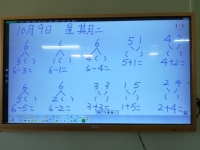 10月9日 星期二
6 6 6 5 1 4
3 ( ) 1 ( ) 4 ( ) ( ) ( )
6-3= 6-1= 6-4= 5+1= 4+2=
6 6 3 3 1 5 2 4
5 ( ) 2 ( ) ( ) ( ) ( )
6-5= 6-2= 3+3= 1+5= 2+4=